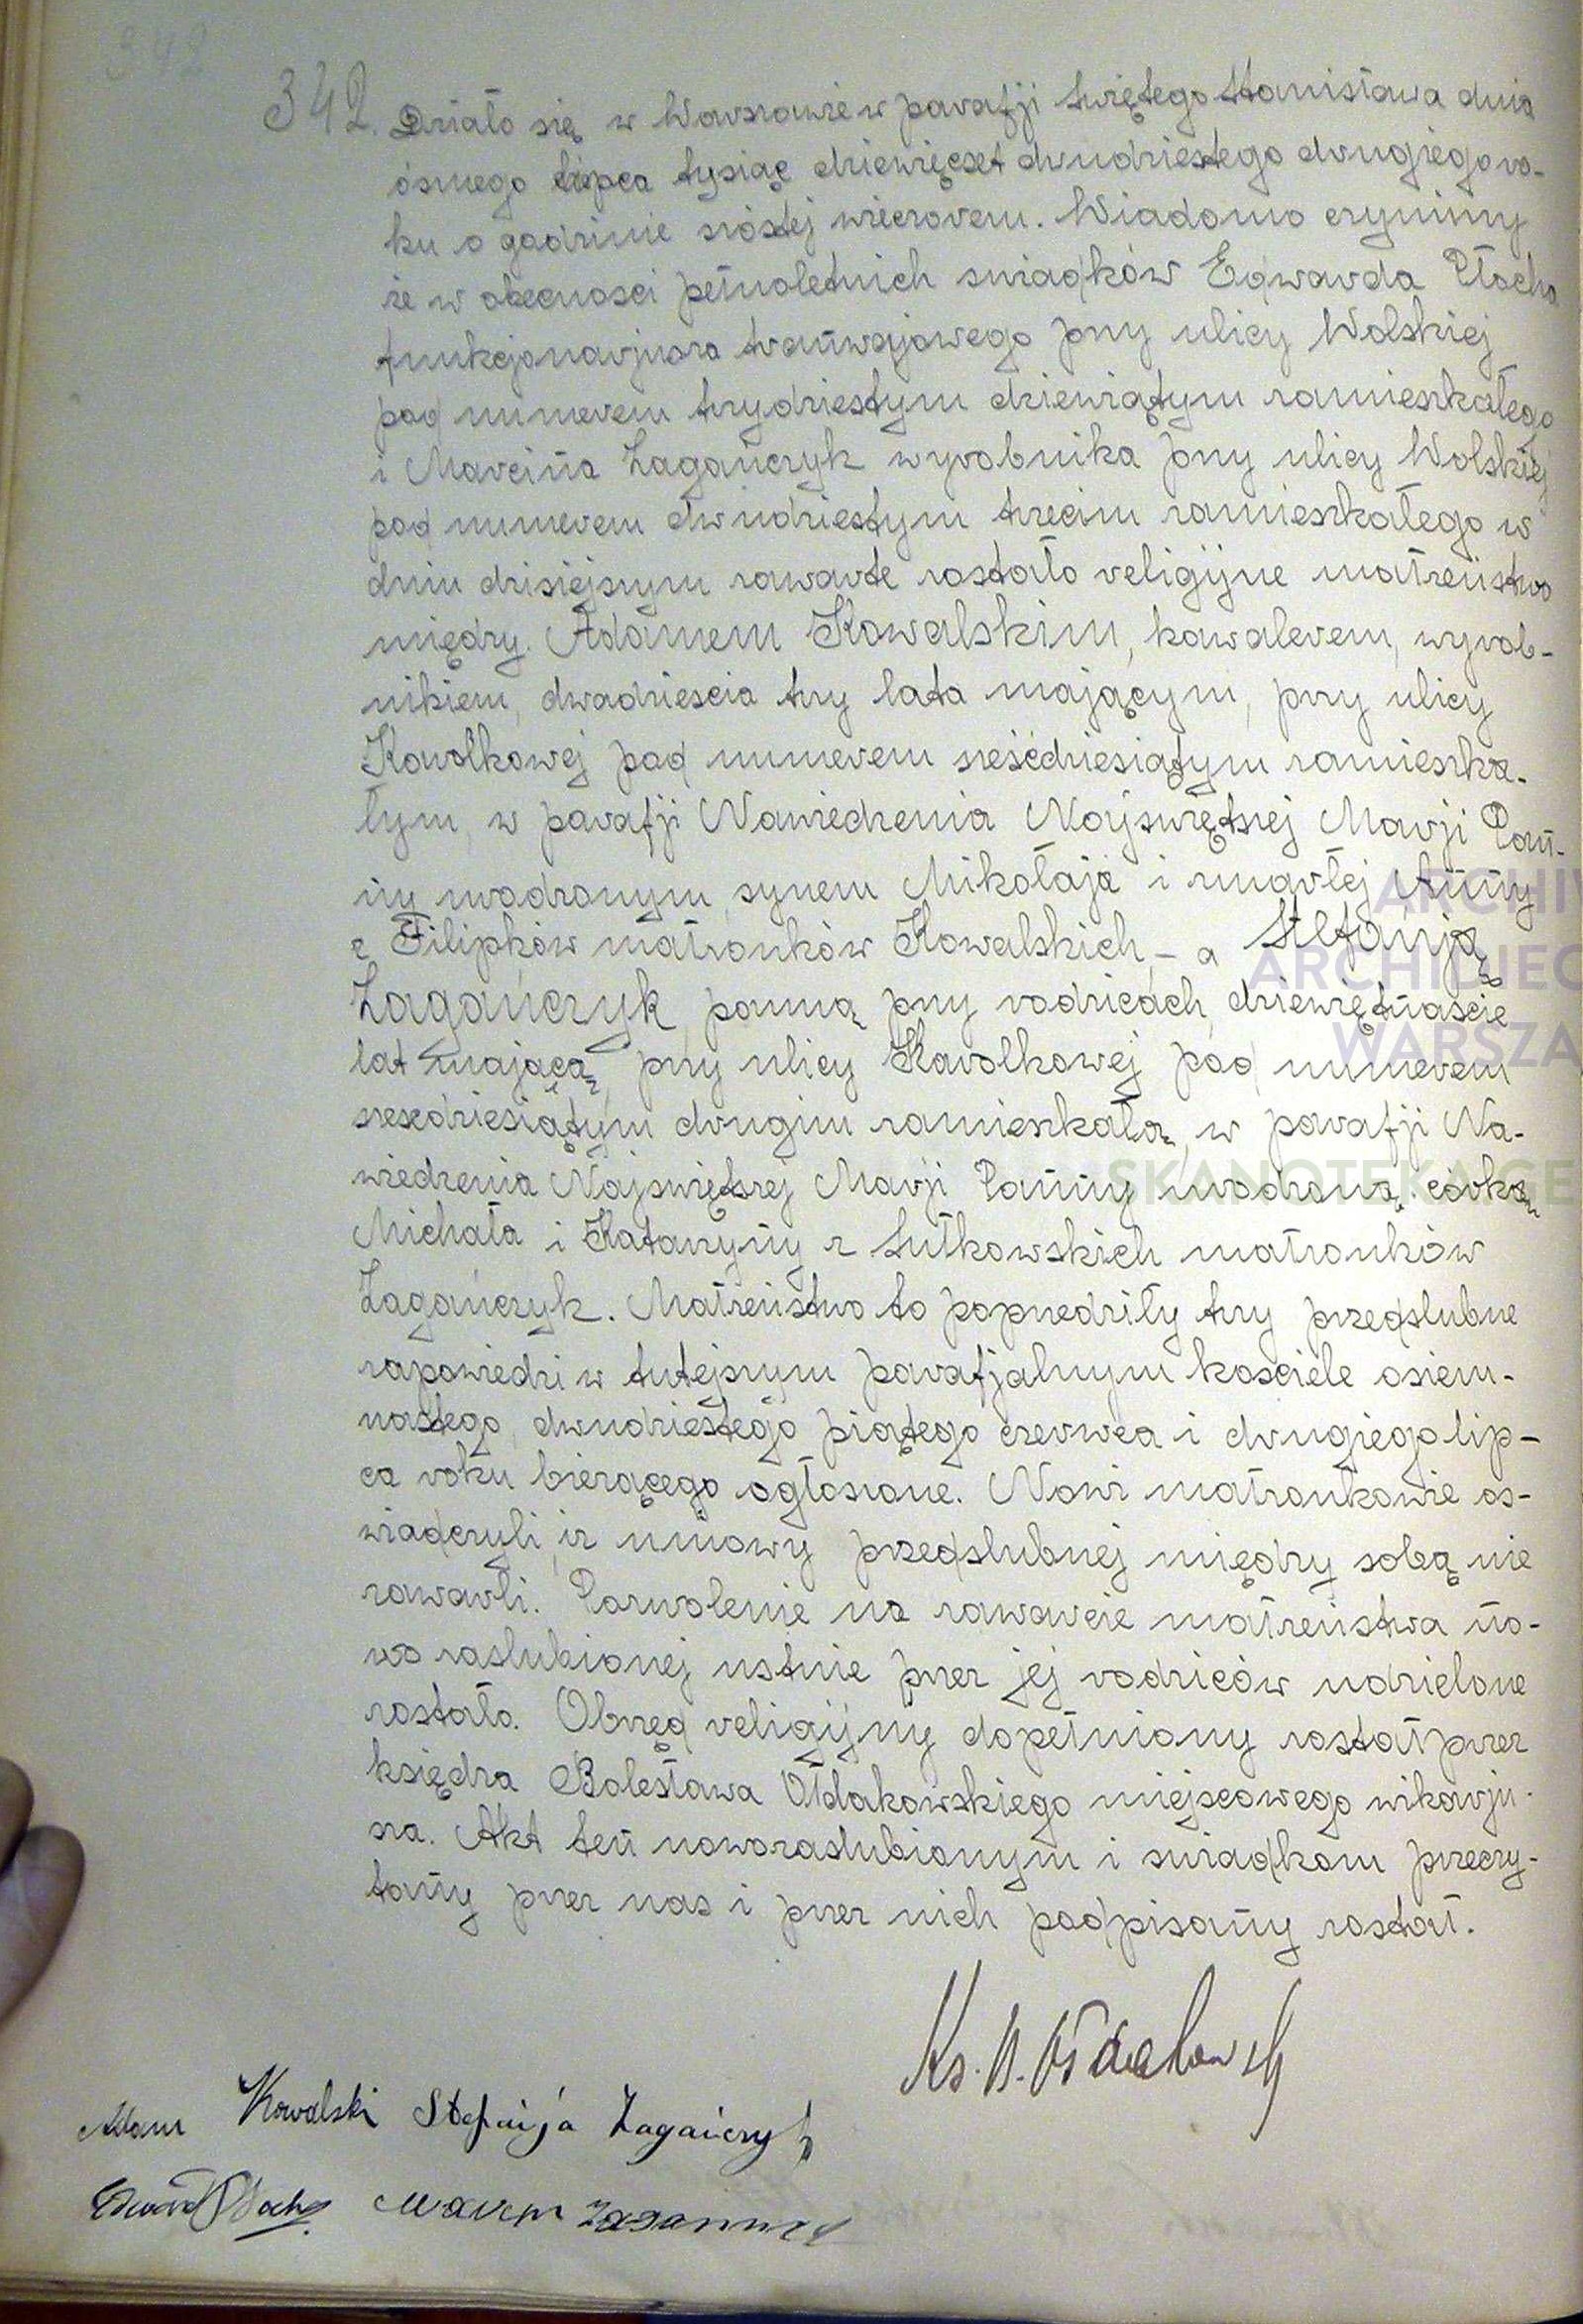 342
342. Działo się w Warszawie w parafji świętego Stanisława dnia
ósmego lipca tysiąc dziewięćset dwudziestego drugiego ro-
ku o godzinie szóstej wieczorem. Wiadomo czynimy
że w obecności pełnoletnich świadków Edwarda Płocha
funkcjonarjusza tramwajowego przy ulicy Wolskiej
pod numerem trzydziestym dziewiątym zamieszkałego
i Marcina Zagańczyk wyrobnika przy ulicy Wolskiej
pod numerem dwudziestym trzecim zamieszkałego w
dniu dzisiejszym zawarte zostało religijne małżeństwo
między Adamem Kowalskim, kawalerem, wyrob-
nikiem, dwadzieścia trzy lata mającym, przy ulicy
Karolkowej pod numerem sześćdziesiątym zamieszka-
łym, w parafji Nawiedzenia Najświętszej Marji Pan-
ny urodzonym, synem Mikołaja i zmarłej Anny
z Filipków małżonków Kowalskich, – a Stefanją
Zagańczyk, panną przy rodzicach, dziewiętnaście
lat mającą, przy ulicy Karolkowej pod numerem
sześćdziesiątym drugim zamieszkałą, w parafji Na-
wiedzenia Najświętszej Marji Panny urodzoną, córką
Michała i Katarzyny z Sutkowskich małżonków
Zagańczyk. Małżeństwo to poprzedziły trzy przedślubne
zapowiedzi w tutejszym parafjalnym kościele osiem-
nastego, dwudziestego piątego czerwca i drugiego lip-
ca roku bieżącego ogłoszone. Nowi małżonkowie oś-
wiadczyli, iż umowy przedślubnej między sobą nie
zawarli. Pozwolenie na zawarcie małżeństwa no-
wo zaślubionej ustnie przez jej rodziców udzielone
zostało. Obrzęd religijny dopełniony został przez
księdza Bolesława Ołdakowskiego miejscowego wikarju-
sza. Akt ten nowozaślubionym i świadkom przeczy-
tany przez nas i przez nich podpisany został.
Ks. B. Ołdakowski
Adam Kowalski Stefanja Zagańczyk
Edward Płocha Marcin Zagańczyk
ARCHIW
ARCHIDIEC
WARSZA
SKANOTEKA.GE